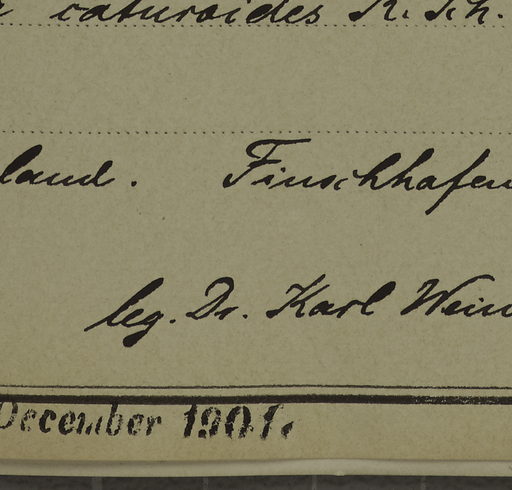 caturoides K. Sch.
land. Finschhafen
leg. Dr. Karl Wein
December 1901.